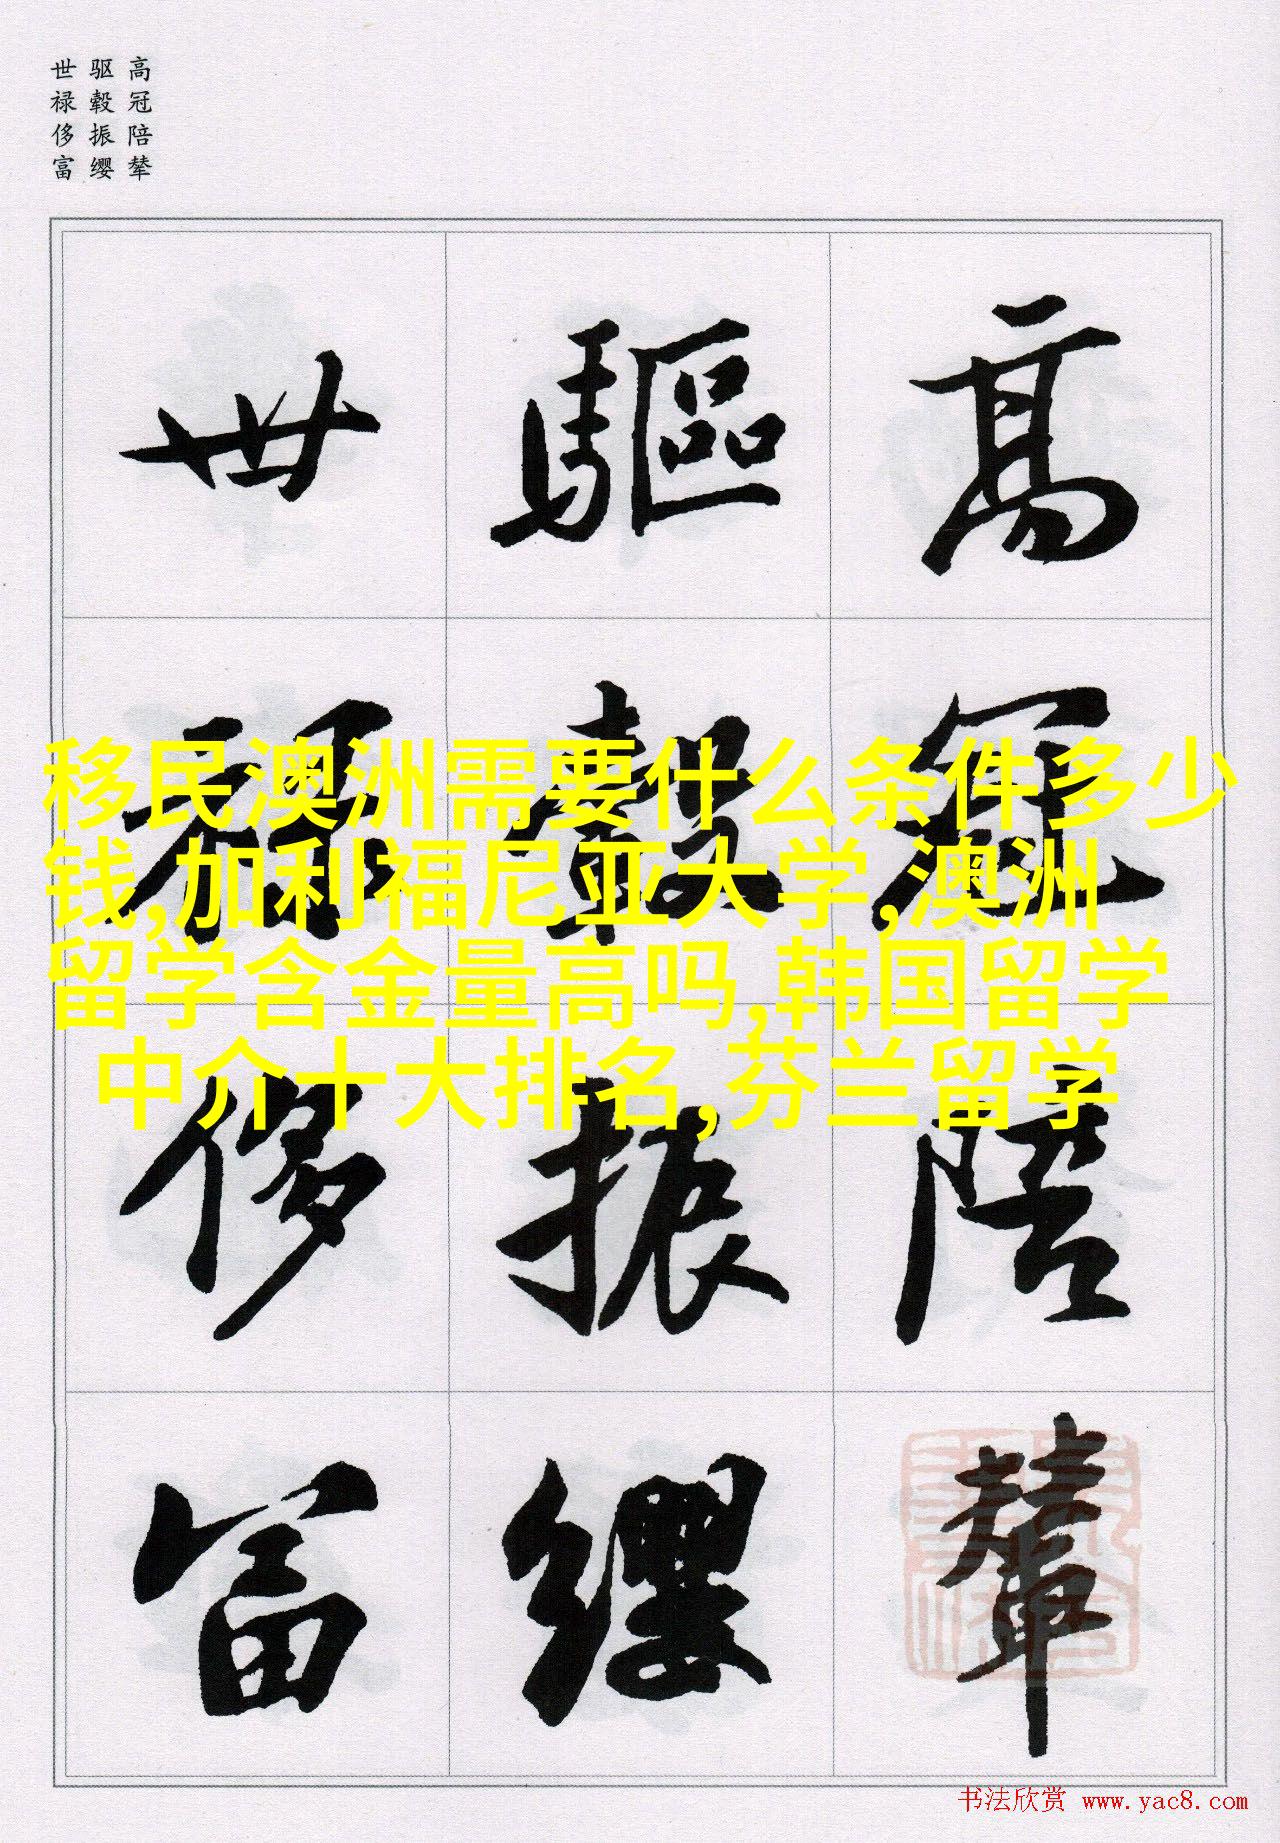 高冠陪辇
驱毂振缨
世禄侈富
高冠陪輦
驅轂振纓
世禄侈富
移民澳洲需要什么条件多少
钱,加利福尼亚大学,澳洲
留学含金量高吗,韩国留学
中介十大排名,芬兰留学
书法欣赏 www.yac8.com